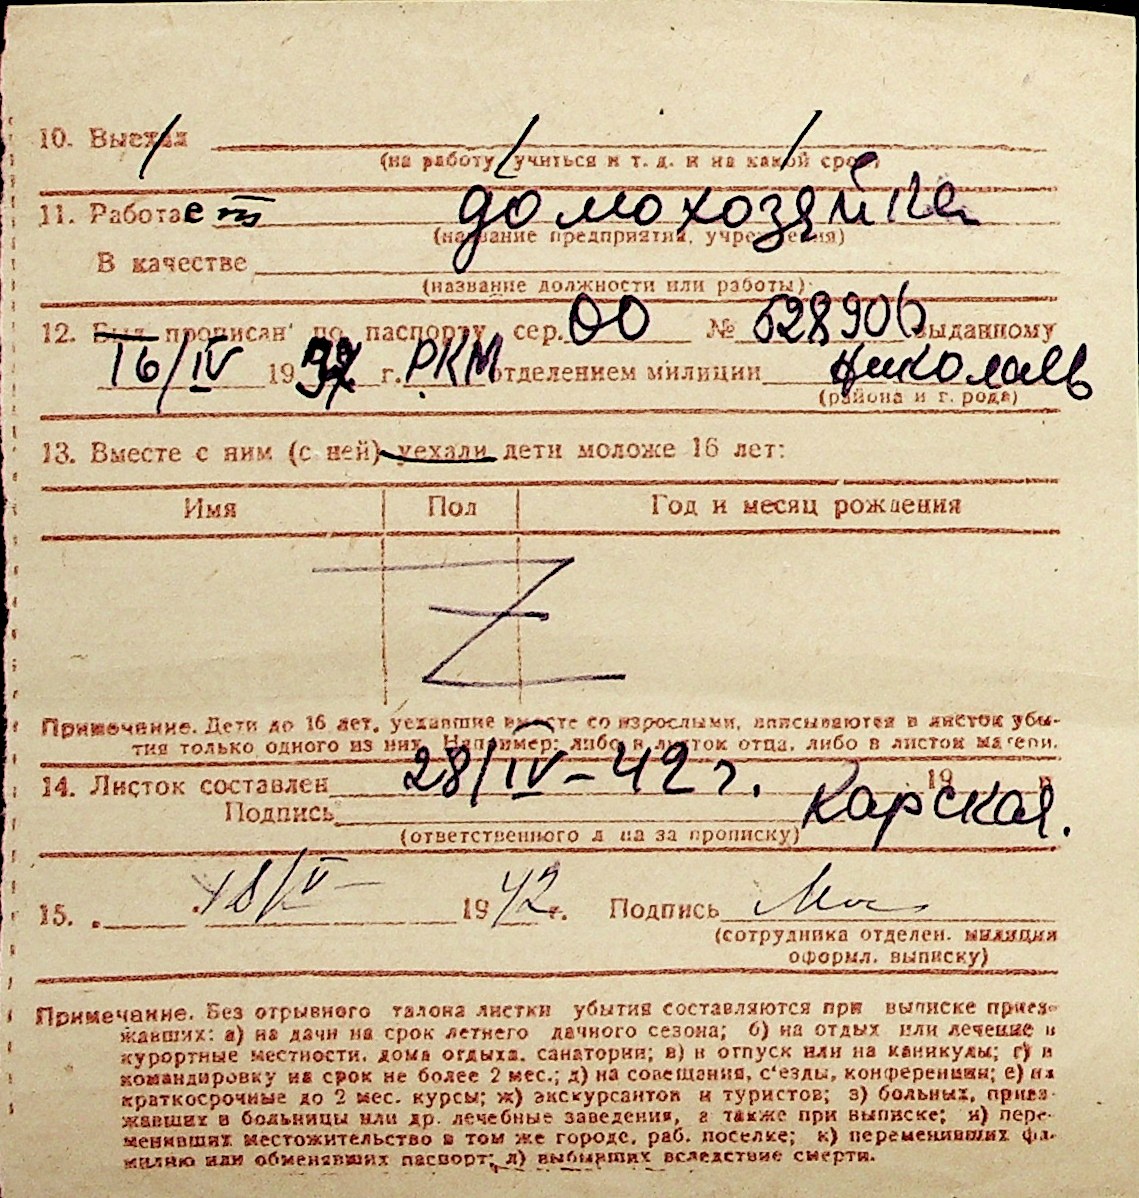 10. Выехал
(на работу, учиться и т. д. и на какой срок)
11. Работает домохозяйка
(название предприятия, учреждения)
В качестве
(название должности или работы)
12. Был прописан по паспорту сер. ОО № 628906 выданному
16/IV 19 г. РКМ отделением милиции Николаевь
(района и г. рода)
13. Вместе с ним (с ней) уехали дети моложе 16 лет:
Имя Пол Год и месяц рождения
Z
Примечание. Дети до 16 лет, уехавшие вместе со взрослыми, вписываются в листок убы-
тия только одного из них. Например: либо в листок отца, либо в листок матери.
14. Листок составлен 28/IV-42 г. 19 г.
Подпись Карская.
(ответственного л на за прописку)
15. 18/V- 1942 г. Подпись
(сотрудника отделен. милиции
оформл. выписку)
Примечание. Без отрывного талона листки убытия составляются при выписке приез-
жавших: а) на дачи на срок летнего дачного сезона; б) на отдых или лечение в
курортные местности, дома отдыха, санатории; в) в отпуск или на каникулы; г) в
командировку на срок не более 2 мес.; д) на совещания, с'езды, конференции; е) на
краткосрочные до 2 мес. курсы; ж) экскурсантов и туристов; з) больных, приез-
жавших в больницы или др. лечебные заведения, а также при выписке; и) пере-
менивших местожительство в том же городе, раб. поселке; к) переменивших фа-
милию или обменявших паспорт; л) выбывших вследствие смерти.